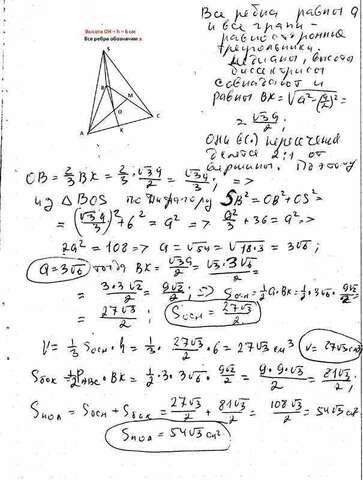 Высота ОН = h = 6 см
Все ребра обозначим a
Все ребра равны a
и все грани -
равносторонние
треугольники.
медианы, высоты
биссектрисы
совпадают и
равны BK = √(a² - (a/2)²) =
= √3a/2;
они в (·) пересечения
делятся 2:1 от
вершины. Поэтому
OB = 2/3 BK = 2/3 · √3a/2 = √3a/3; =>
из ΔBOS по Пифагору SB² = OB² + OS² =
= (√3a/3)² + 6² = a² => a²/3 + 36 = a² =>
2a² = 108 => a = √54 = √18·3 = 3√6;
a = 3√6 тогда BK = √3a/2 = √3·3√6/2 =
= 3·3√2/2 = 9√2/2; => Sосн = 1/2 a·BK = 1/2 · 3√6 · 9√2/2
= 27√3/2; Sосн = 27√3/2
V = 1/3 Sосн · h = 1/3 · 27√3/2 · 6 = 27√3 см³ V = 27√3 см³
Sбок = 1/2 PABC · BK = 1/2 · 3·3√6 · 9√2/2 = 9·9√3/2 = 81√3/2;
Sпол = Sосн + Sбок = 27√3/2 + 81√3/2 = 108√3/2 = 54√3 см²
Sпол = 54√3 см²
S
B
M
O
A
K
C